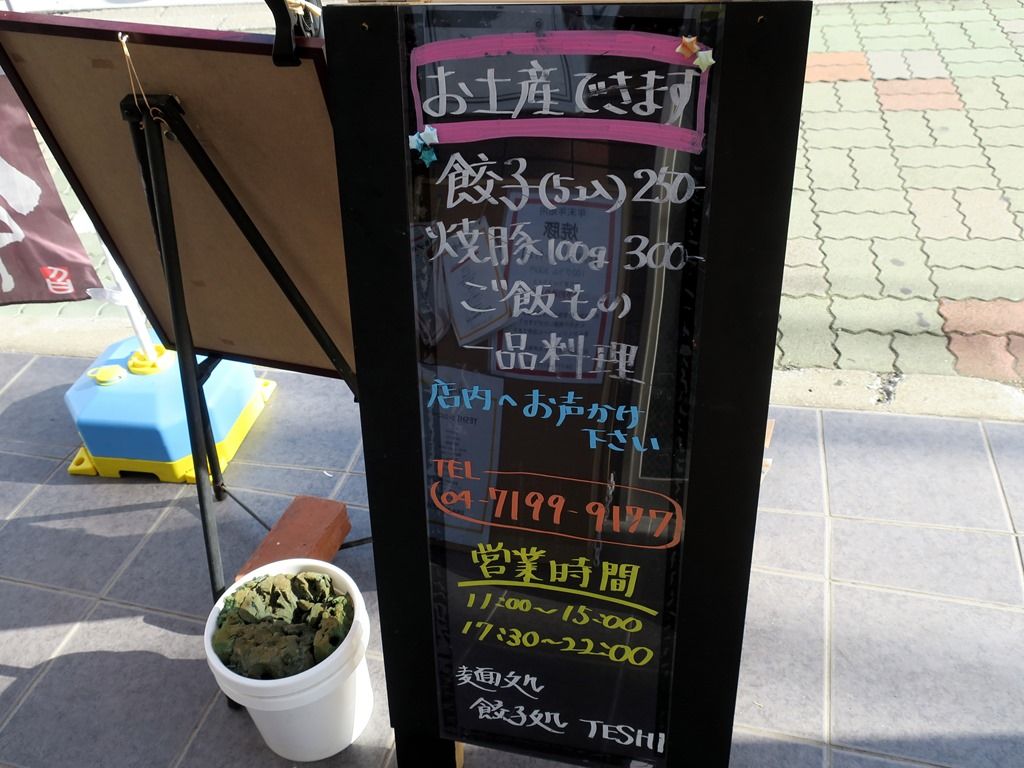 お土産できます
餃子(5コ入) 250-
焼豚 100g 300-
ご飯もの
一品料理
店内へお声かけ
下さい
TEL
04-7199-9177
営業時間
11:00～15:00
17:30～22:00
麺処
餃子処 TESHI